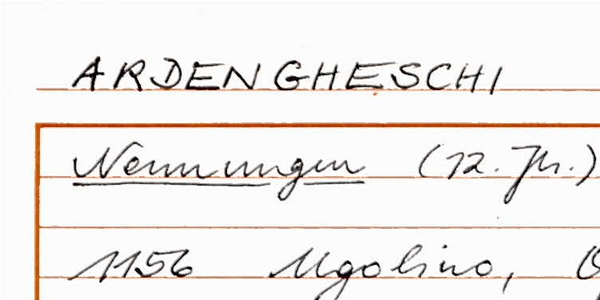 ARDENGHESCHI
Nennungen (12. Jh.)
1156 Ugolino,